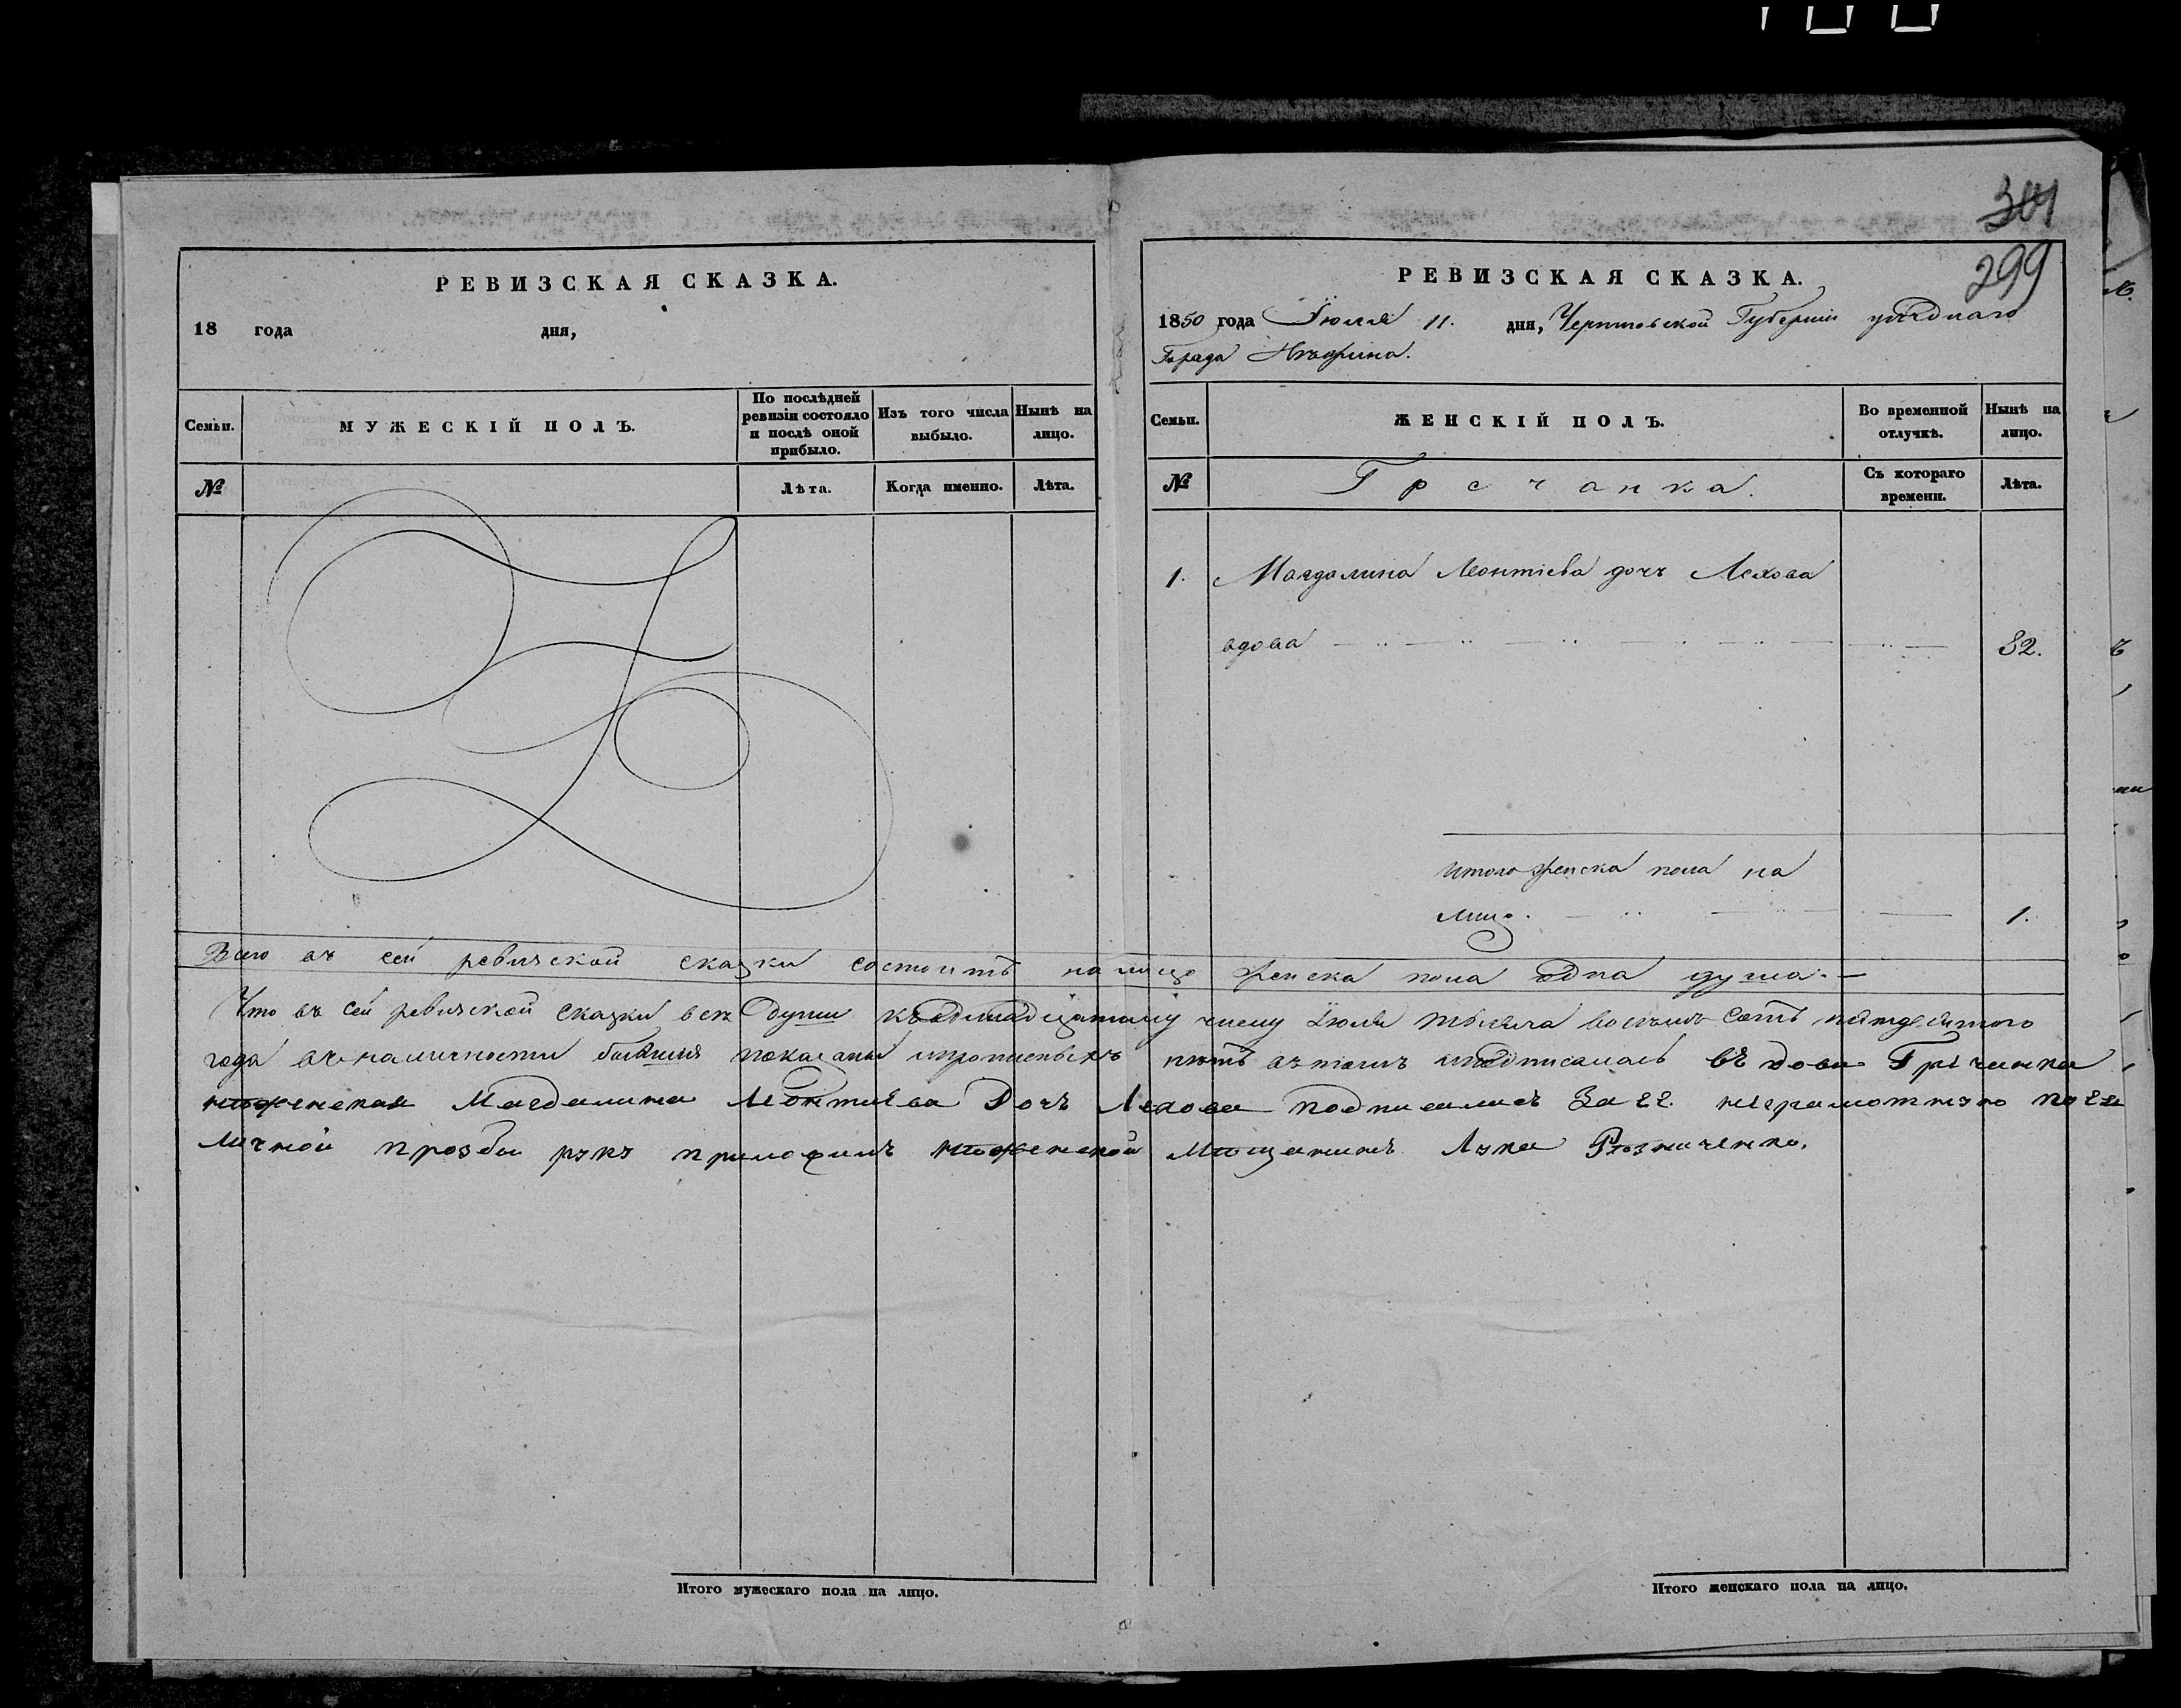 304
299
РЕВИЗСКАЯ СКАЗКА.
18 года дня,
Семьи. МУЖЕСКІЙ ПОЛЪ. По послѣдней ревизіи состояло и послѣ оной прибыло. Изъ того числа выбыло. Нынѣ на лицо.
№ Лѣта. Когда именно. Лѣта.
РЕВИЗСКАЯ СКАЗКА.
1850 года Іюля 11. дня, Черниговской Губерніи уѣзднаго
Города Нѣжина.
Семьи. ЖЕНСКІЙ ПОЛЪ. Во временной отлучкѣ. Нынѣ на лицо.
№ Гречанка. Съ котораго времени. Лѣта.
1. Магдалина Леонтіева дочь Лехова
вдова 82.
Итого женска пола на
лицо. 1.
Всего въ сей ревизской сказки состоитъ на лицо женска пола одна душа.
Что въ сей ревизской сказки всѣ души къ одинадцатому числу Іюля тысяча восемь сотъ пятдесятого
года въ наличности показаны и прописныхъ нѣтъ въ томъ и подписалась въдова Гречанка
нѣженская Магдалина Леонтиева Дочъ Лехова подписалась За ее. неграмотную по ее
личной прозби руку приложилъ нѣженской мѣщанинъ Лука Рѣзниченко.
Итого мужескаго пола на лицо.
Итого женскаго пола на лицо.